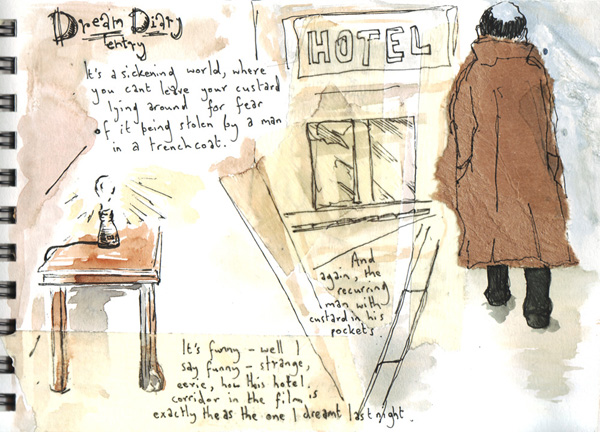 Dream Diary
entry
It's a sickening world, where
you cant leave your custard
lying around for fear
of it being stolen by a man
in a trenchcoat.
HOTEL
And
again, the
recurring
man with
custard in his
pockets.
It's funny - well I
say funny - strange,
eerie, how this hotel
corridor in the film is
exactly the as the one I dreamt last night.